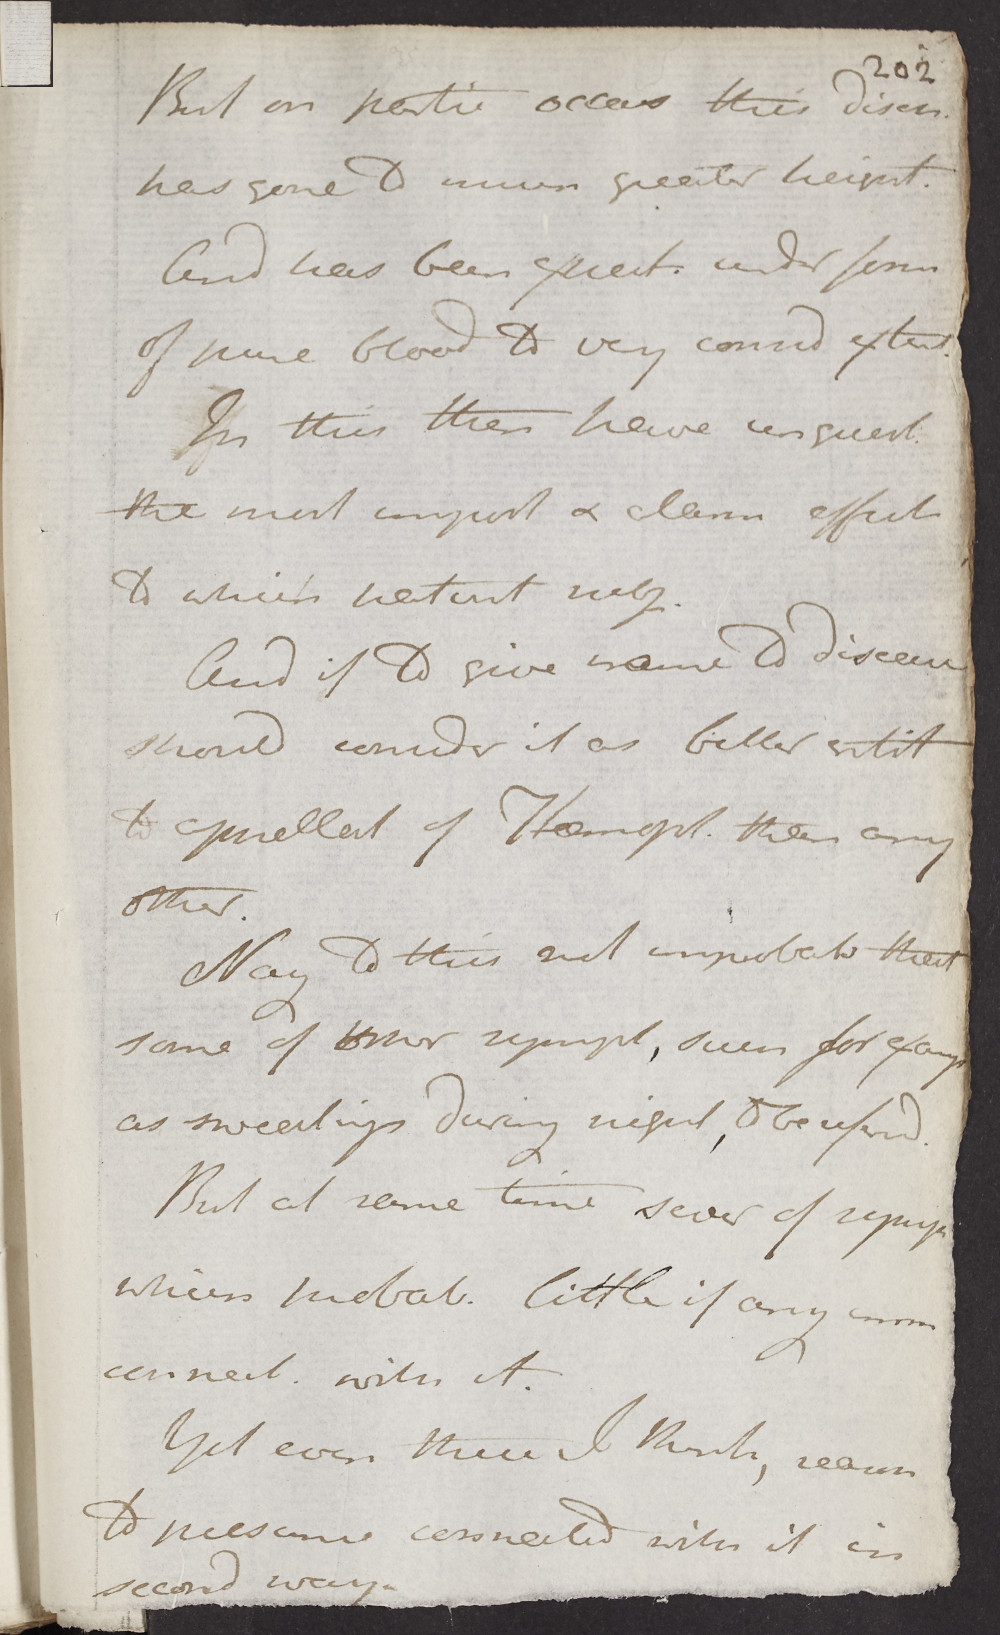 202
But on partic occas this diseas.
has gone to much greater height.
And has been expect. under form
of pure blood to very consid extent.
In this then have unquest.
the most import & alarm effect
to which patient subj.
And if to give name to disease
should consider it as better entit
to appellat of Hæmopt. than any
other.
Nay to this not improbab that
some of other sympt, such for examp
as sweatings during night, to be referd.
But at same time sever of symp
which probab. little if any imm
connect. with it.
Yet even these I think, reason
to presume connected with it in
second way.